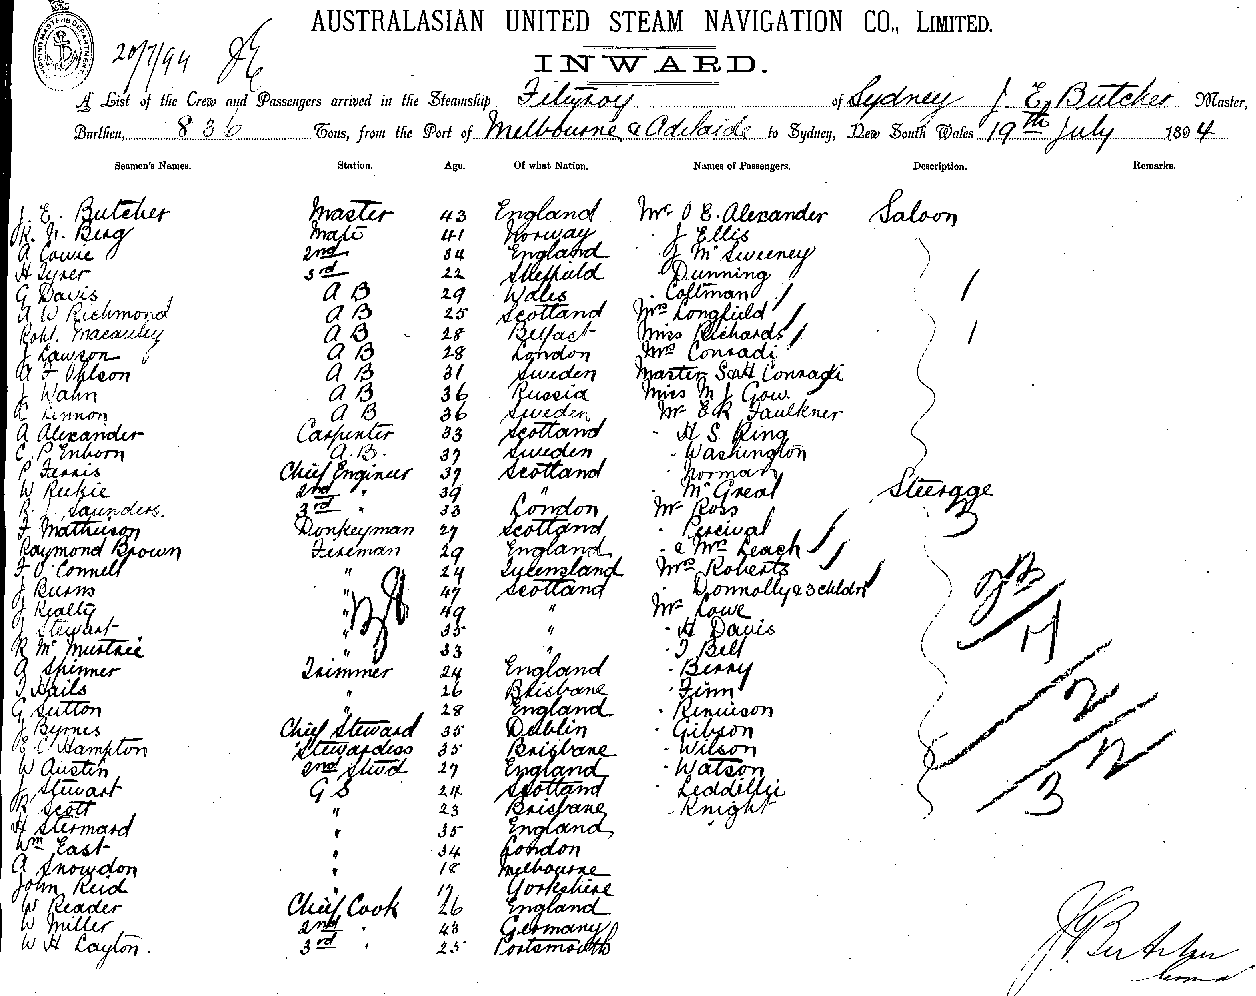 AUSTRALASIAN UNITED STEAM NAVIGATION CO., LIMITED.
20/7/94
INWARD.
A List of the Crew and Passengers arrived in the Steamship Fitzroy of Sydney J. E. Butcher Master,
Burthen, 836 Tons, from the Port of Melbourne & Adelaide to Sydney, New South Wales 19th July 1894
Seamen's Names. Station. Age. Of what Nation. Names of Passengers. Description. Remarks.
J. E. Butcher Master 43 England Mr O E. Alexander Saloon
R. N. Berg Mate 41 Norway " J Ellis
A Cowie 2nd 34 England " J McSweeney
H Tyrer 3rd 22 Sheffield " Dunning
G Davis A B 29 Wales " Coltman
A W Richmond A B 25 Scotland Mrs Longfield
Robt. Macauley A B 28 Belfast Miss Richards
J Lawson A B 28 London Mrs Conradi
A F Ohlson A B 31 Sweden Master Scott Conradi
J Wahn A B 36 Russia Miss M J Gow
Lennon A B 36 Sweden Mr E R Faulkner
A Alexander Carpenter 33 Scotland " H S King
C. P Enborn A.B. 37 Sweden " Washington
P Ferris Chief Engineer 37 Scotland " Norman
W Reekie 2nd " 39 " " McGreal Steerage
R. J Saunders. 3rd " 33 London Mr Ross 3
F Mathieson Donkeyman 27 Scotland " Percival
Raymond Brown Fireman 29 England " & Mrs Leach
F O'Connell " 24 Queensland Mrs Roberts
J Burns " 47 Scotland " Donnolly & 3 childn
J Kealty " 49 " Mr Lowe
J Stewart " 35 " " H Davis
R Mc " 33 " " T Bell
A Skinner Trimmer 24 England " Berry
T Hails " 26 Brisbane " Finn
G Sutton " 28 England " Rennison
J Byrnes Chief Steward 35 Dublin " Gibson
E C Hampton Stewardess 35 Brisbane " Wilson
W Austin 2nd Stwd 27 England " Watson
J Stewart G S 24 Scotland
R Scott " 23 Brisbane " Knight
H " 35 England
Wm East " 34 London
A Snowdon " 18 Melbourne
John Reid " 17 Yorkshire
W Reader Chief Cook 26 England
W Miller 2nd " 43 Germany
W H Layton. 3rd " 25 Portsmouth
38
17
2
12
3
J E Butcher